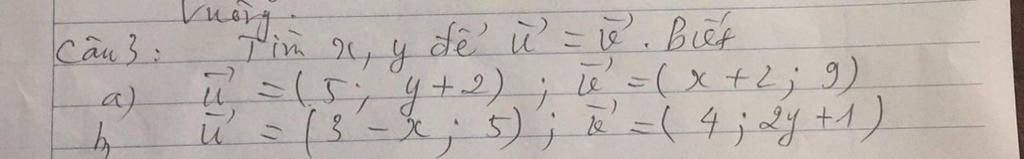 vuông.
Câu 3: Tìm x, y để u⃗ = v⃗. Biết
a) u⃗ = (5; y+2); v⃗ = (x+2; 9)
b, u⃗ = (3-x; 5); v⃗ = (4; 2y+1)